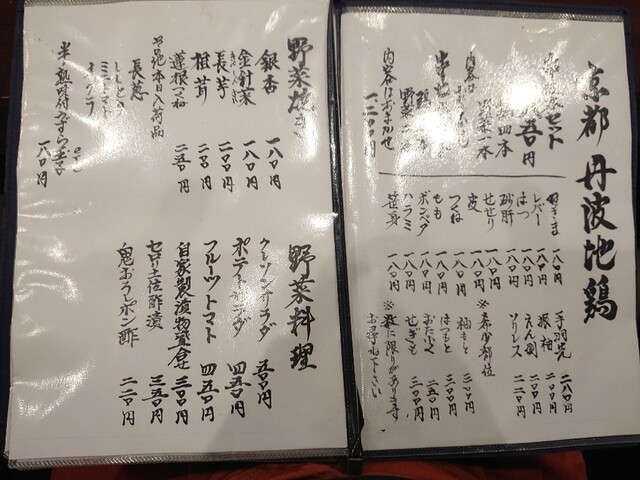 京都 丹波地鶏
セット
内容はおまかせ
一二〇〇円
ねぎま 一八〇円
レバー 一八〇円
はつ 一八〇円
砂肝 一八〇円
せせり 一八〇円
皮 一八〇円
つくね 一八〇円
もも 一八〇円
ボンベタ 一八〇円
ハラミ 一八〇円
笹身 一八〇円
手羽先 二八〇円
二〇〇円
えんがわ 二〇〇円
ソリレス 二二〇円
※希少部位
はつもと 二〇〇円
おたふく 二五〇円
せぎも 三〇〇円
※数に限りがあります
お尋ね下さい
野菜焼き
銀杏 一八〇円
金針菜 一八〇円
長芋 二〇〇円
椎茸 二〇〇円
蓮根つくね 二五〇円
その他本日入荷品
長葱
ししとう
ミニトマト
オクラ
半熟味付うずら玉子 一八〇円
野菜料理
クレソンサラダ 五〇〇円
ポテトサラダ 四五〇円
フルーツトマト 四五〇円
自家製漬物盛合せ 三〇〇円
セロリ土佐酢漬 三五〇円
鬼おろしポン酢 二二〇円